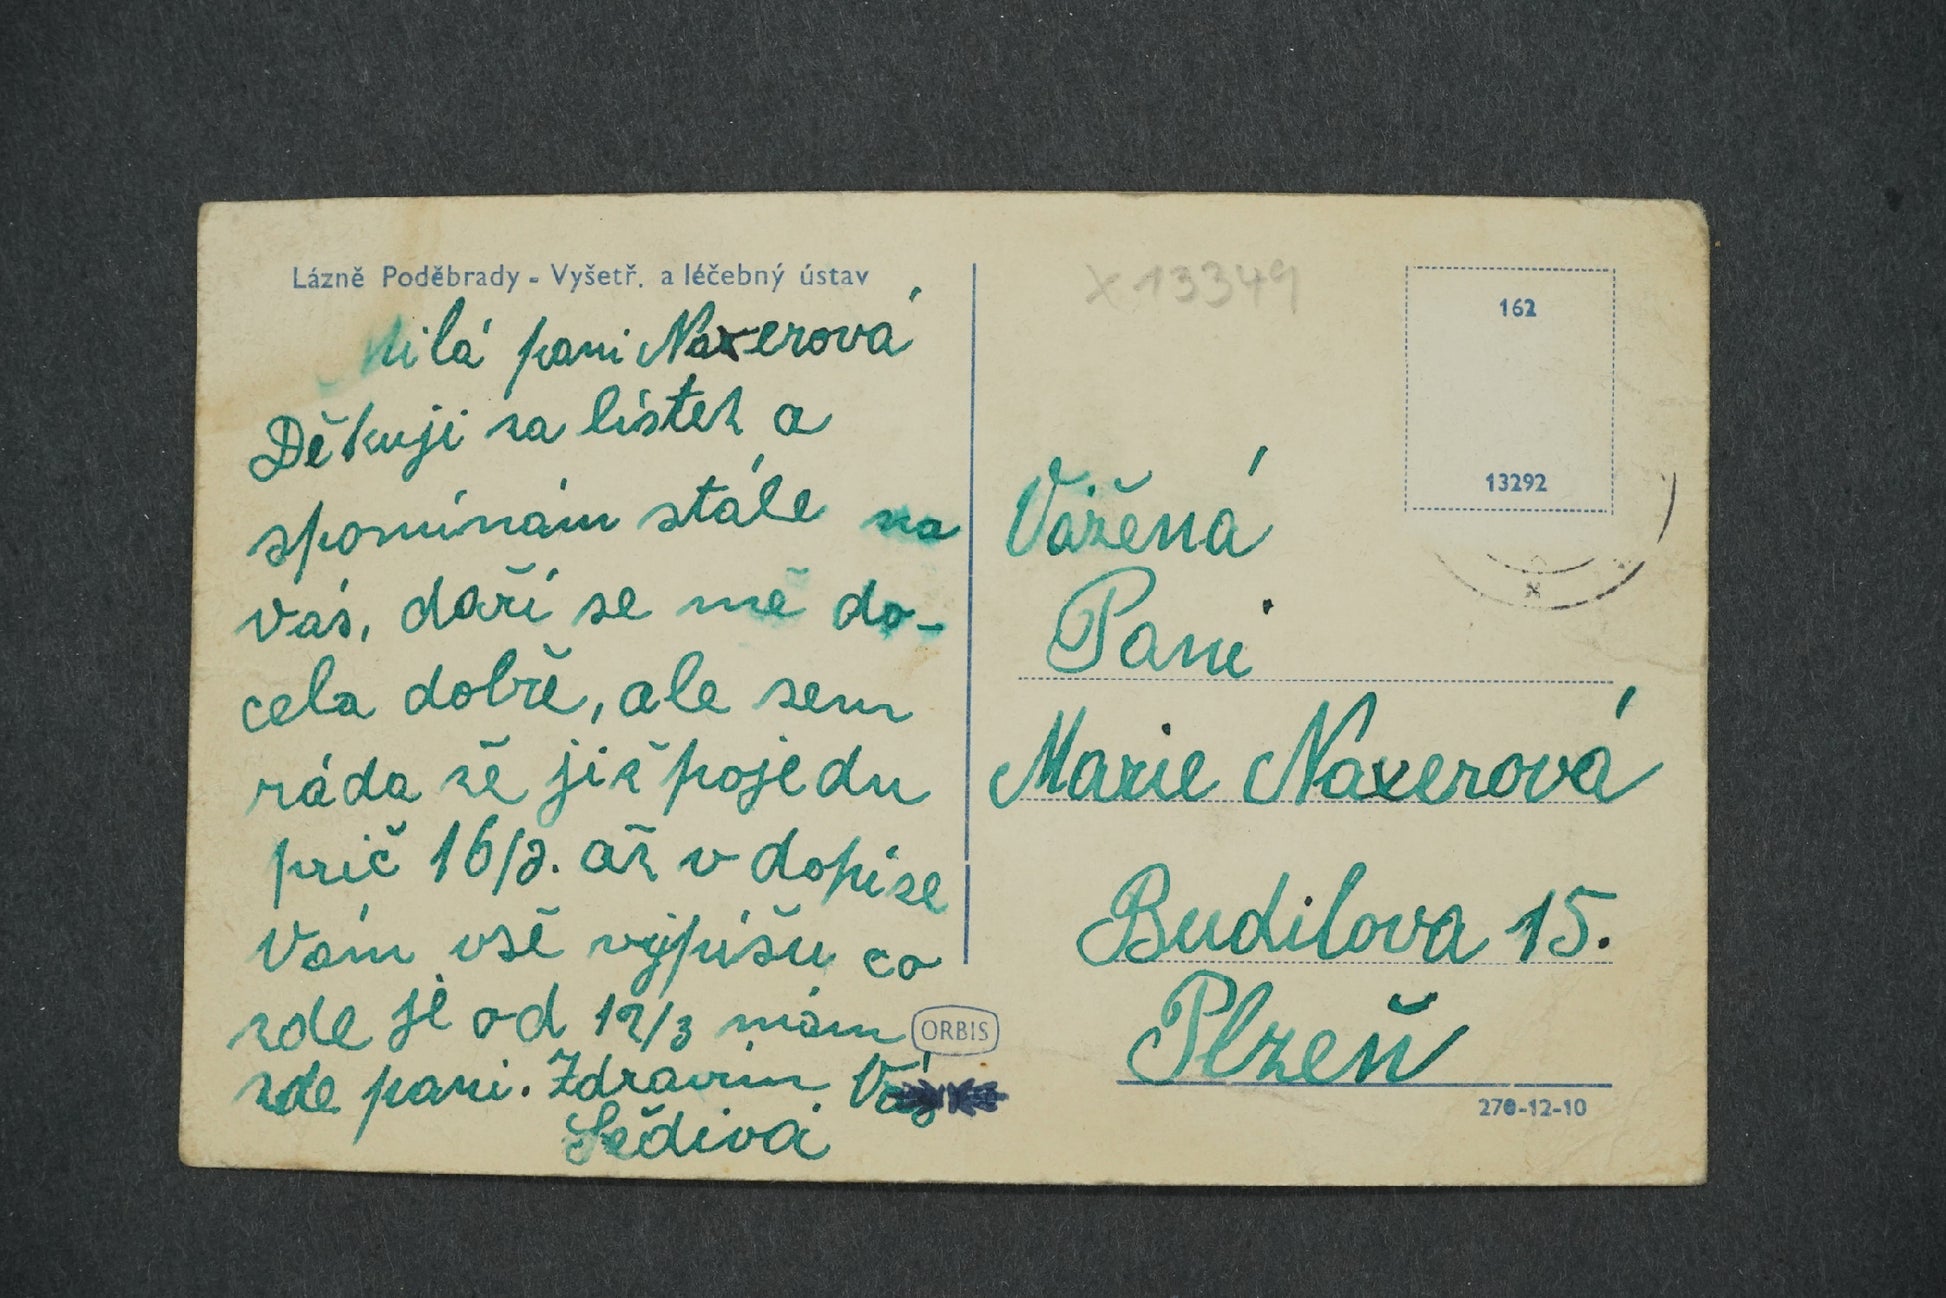 Lázně Poděbrady - Vyšetř. a léčebný ústav
Milá pani Naxerová
Děkuji za lístek a
spomínám stále na
vás, daří se mě do-
cela dobře, ale sem
ráda žě již pojedu
prič 16/3. až v dopise
Vám vše výpíšu co
zde je od 12/3 mám
zde pani. Zdravím Vás
Šedivá
ORBIS
X 13349
162
13292
Vážená
Pani
Marie Naxerová
Budilova 15.
Plzeň
270-12-10